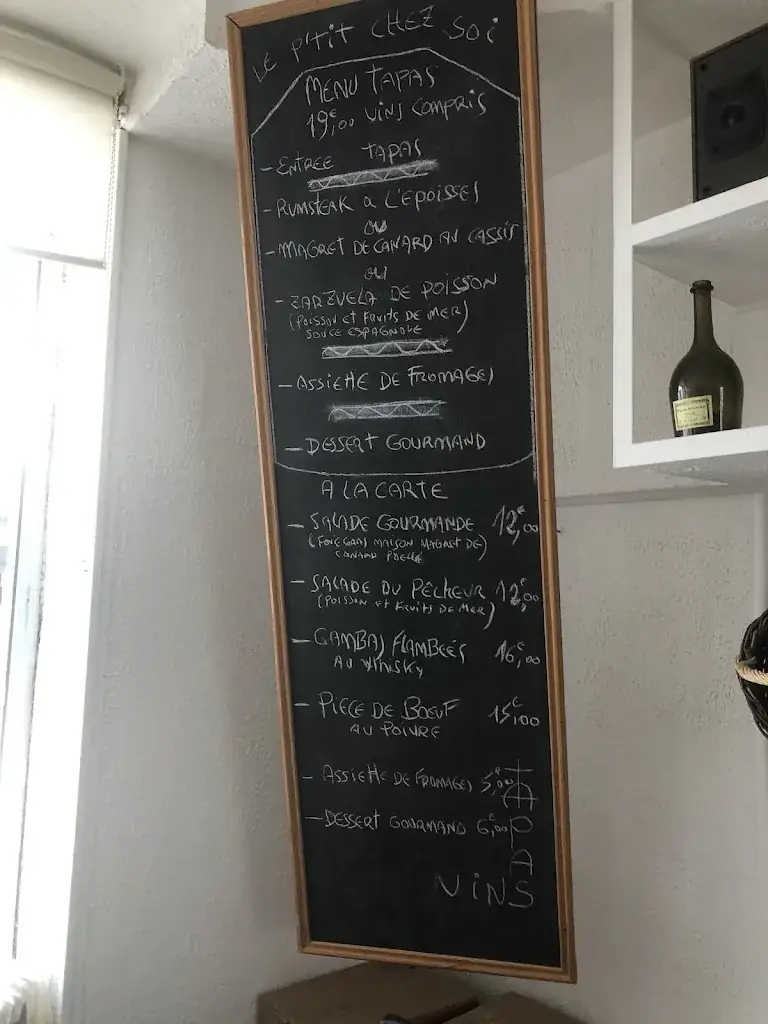 LE P'TIT CHEZ SOI
MENU TAPAS
19€,00 VINS COMPRIS
- ENTREE TAPAS
- RUMSTEAK A L'EPOISSES
OU
- MAGRET DE CANARD AU CASSIS
OU
- ZARZUELA DE POISSON
(POISSON ET FRUITS DE MER)
SOUCE ESPAGNOLE
- ASSIETTE DE FROMAGES
- DESSERT GOURMAND
A LA CARTE
- SALADE GOURMANDE 12€,00
(FOIE GRAS MAISON MAGRET DE)
CANARD POELÉ
- SALADE DU PÊCHEUR 12€,00
(POISSON ET FRUITS DE MER)
- GAMBAS FLAMBEÉS 16€,00
AU WHISKY
- PIECE DE BOEUF 15€,00
AU POIVRE
- ASSIETTE DE FROMAGES 5€,00
- DESSERT GOURMAND 6€,00
T
A
P
A
VINS